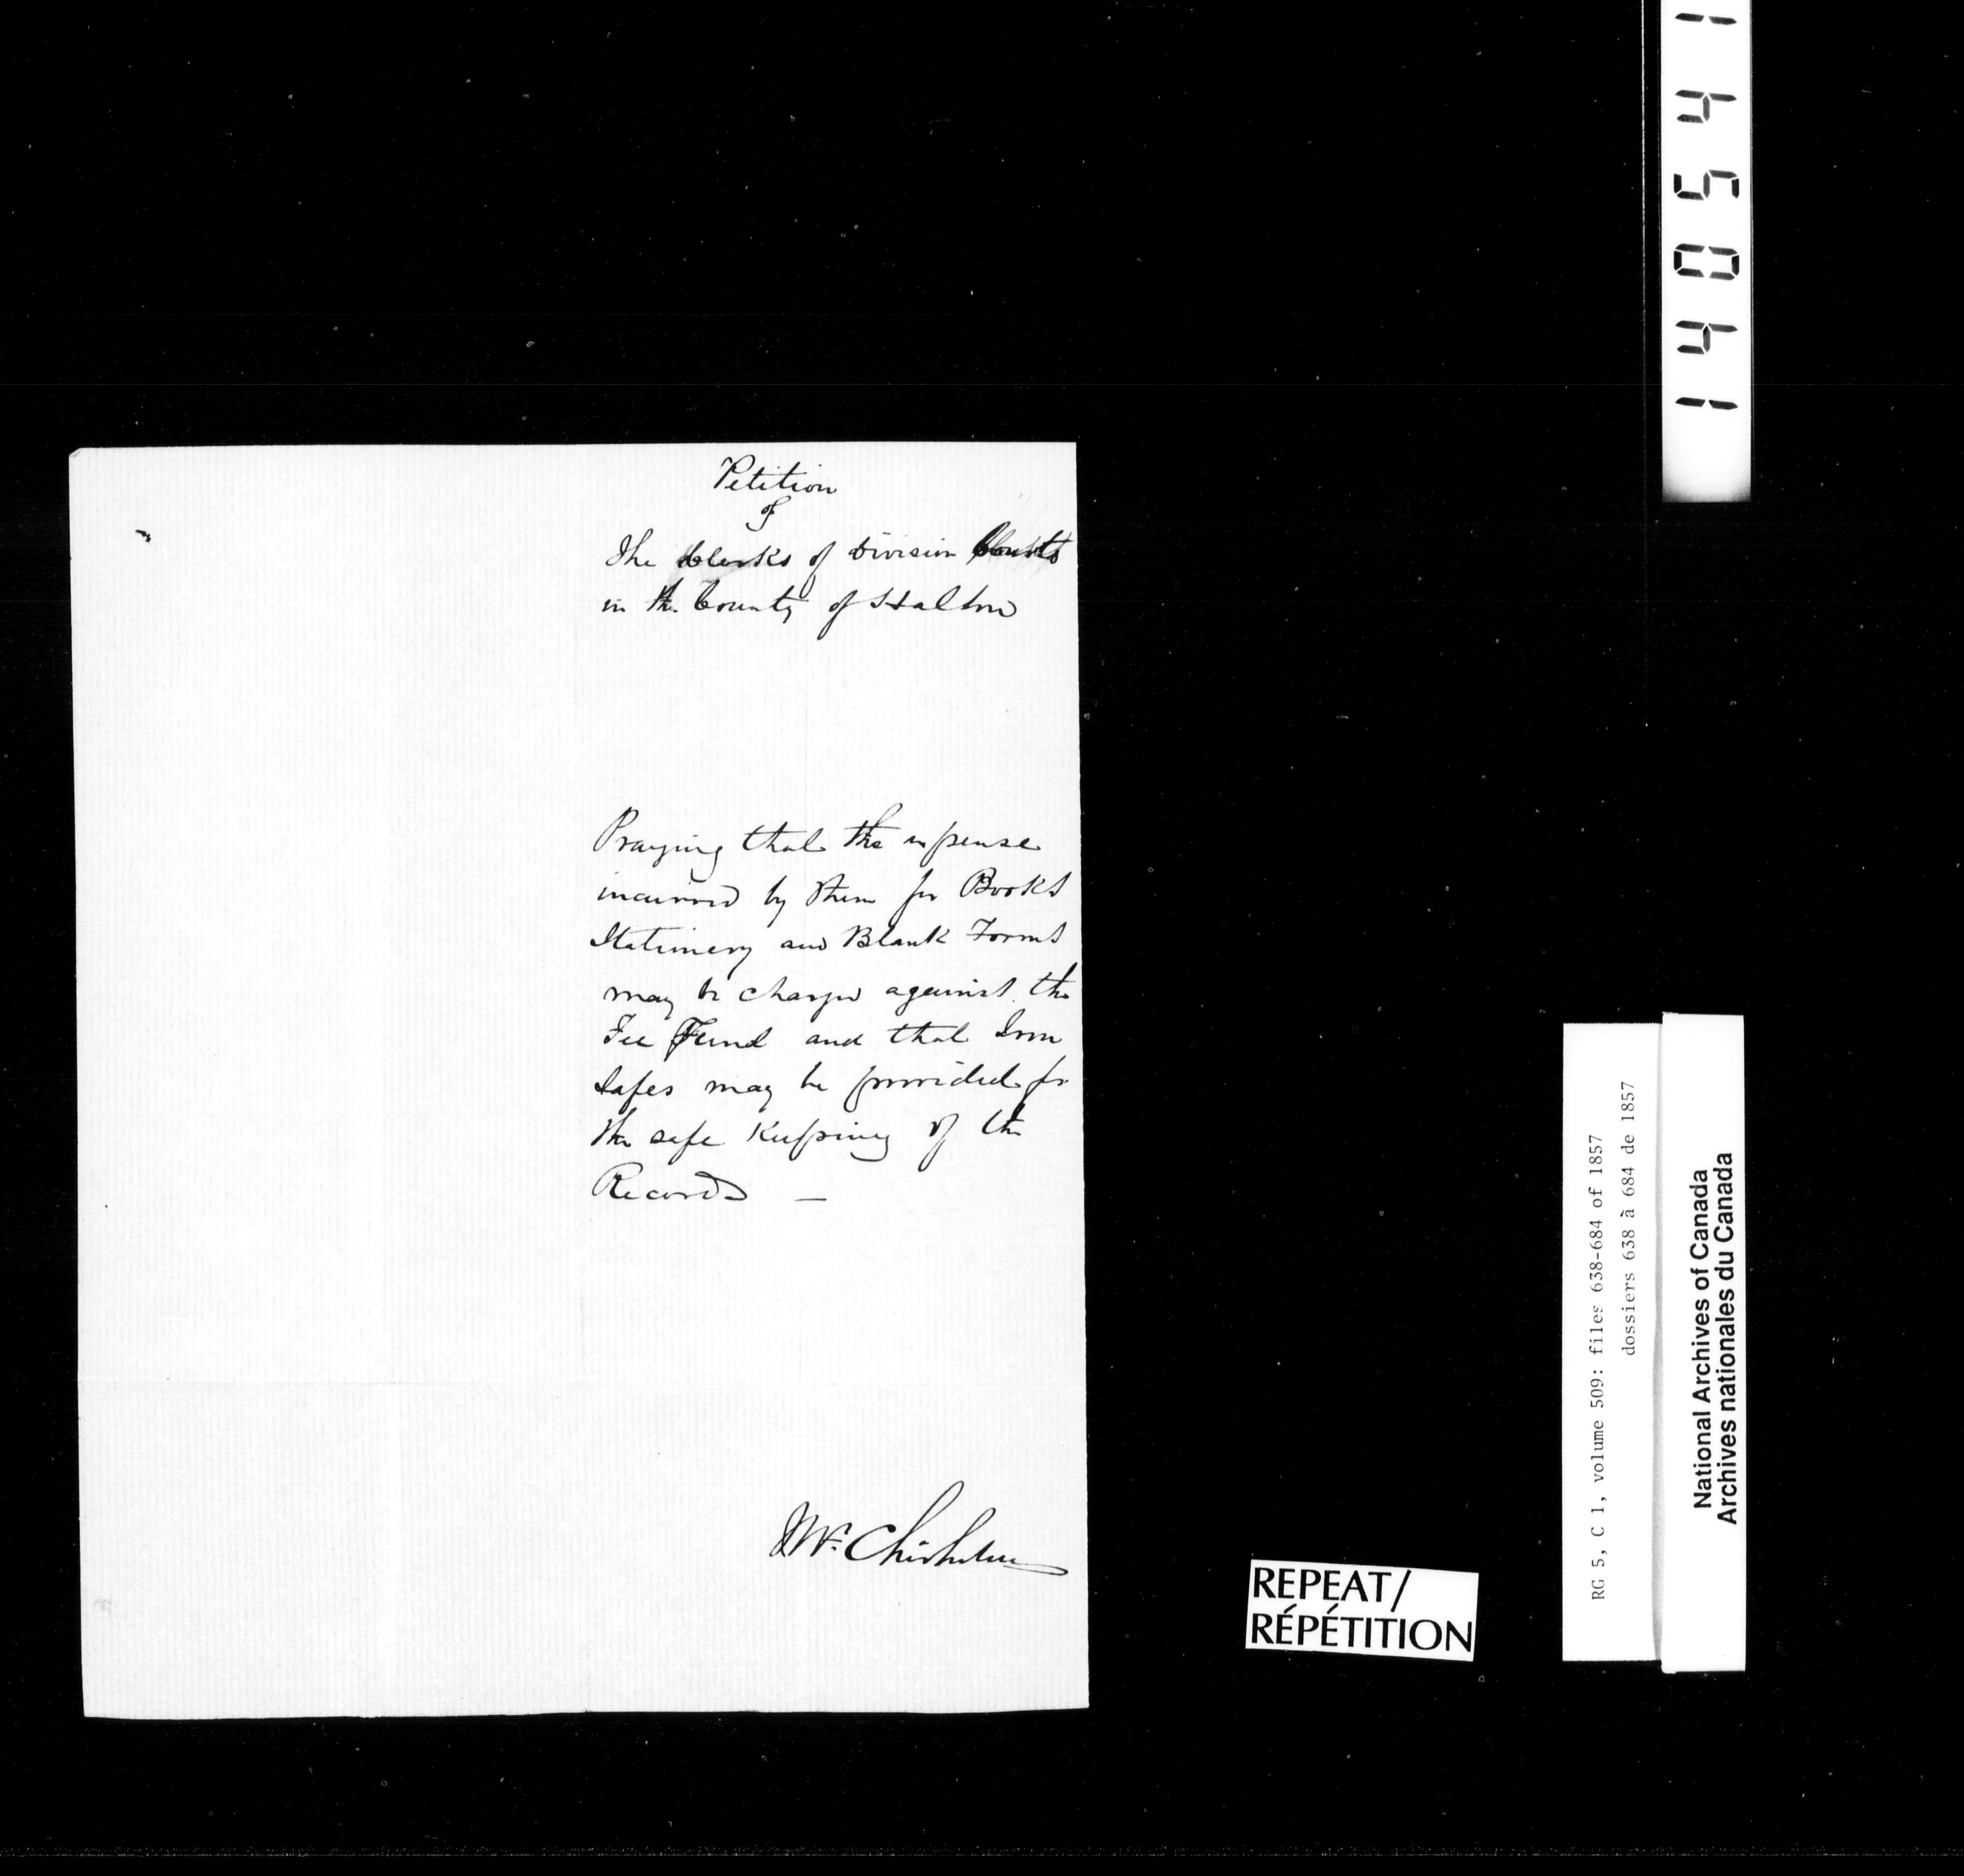 Petition
of
The Clerks of Division Courts
in the County of Halton
Praying that the expense
incurred by them for Books
Stationery and Blank Forms
may be charged against the
Fee Fund and that Iron
Safes may be provided for
the safe Keeping of the
Records —
Mr. Chisholm
REPEAT/
RÉPÉTITION
RG 5, C 1, volume 509: files 638-684 of 1857
dossiers 638 à 684 de 1857
National Archives of Canada
Archives nationales du Canada
140541